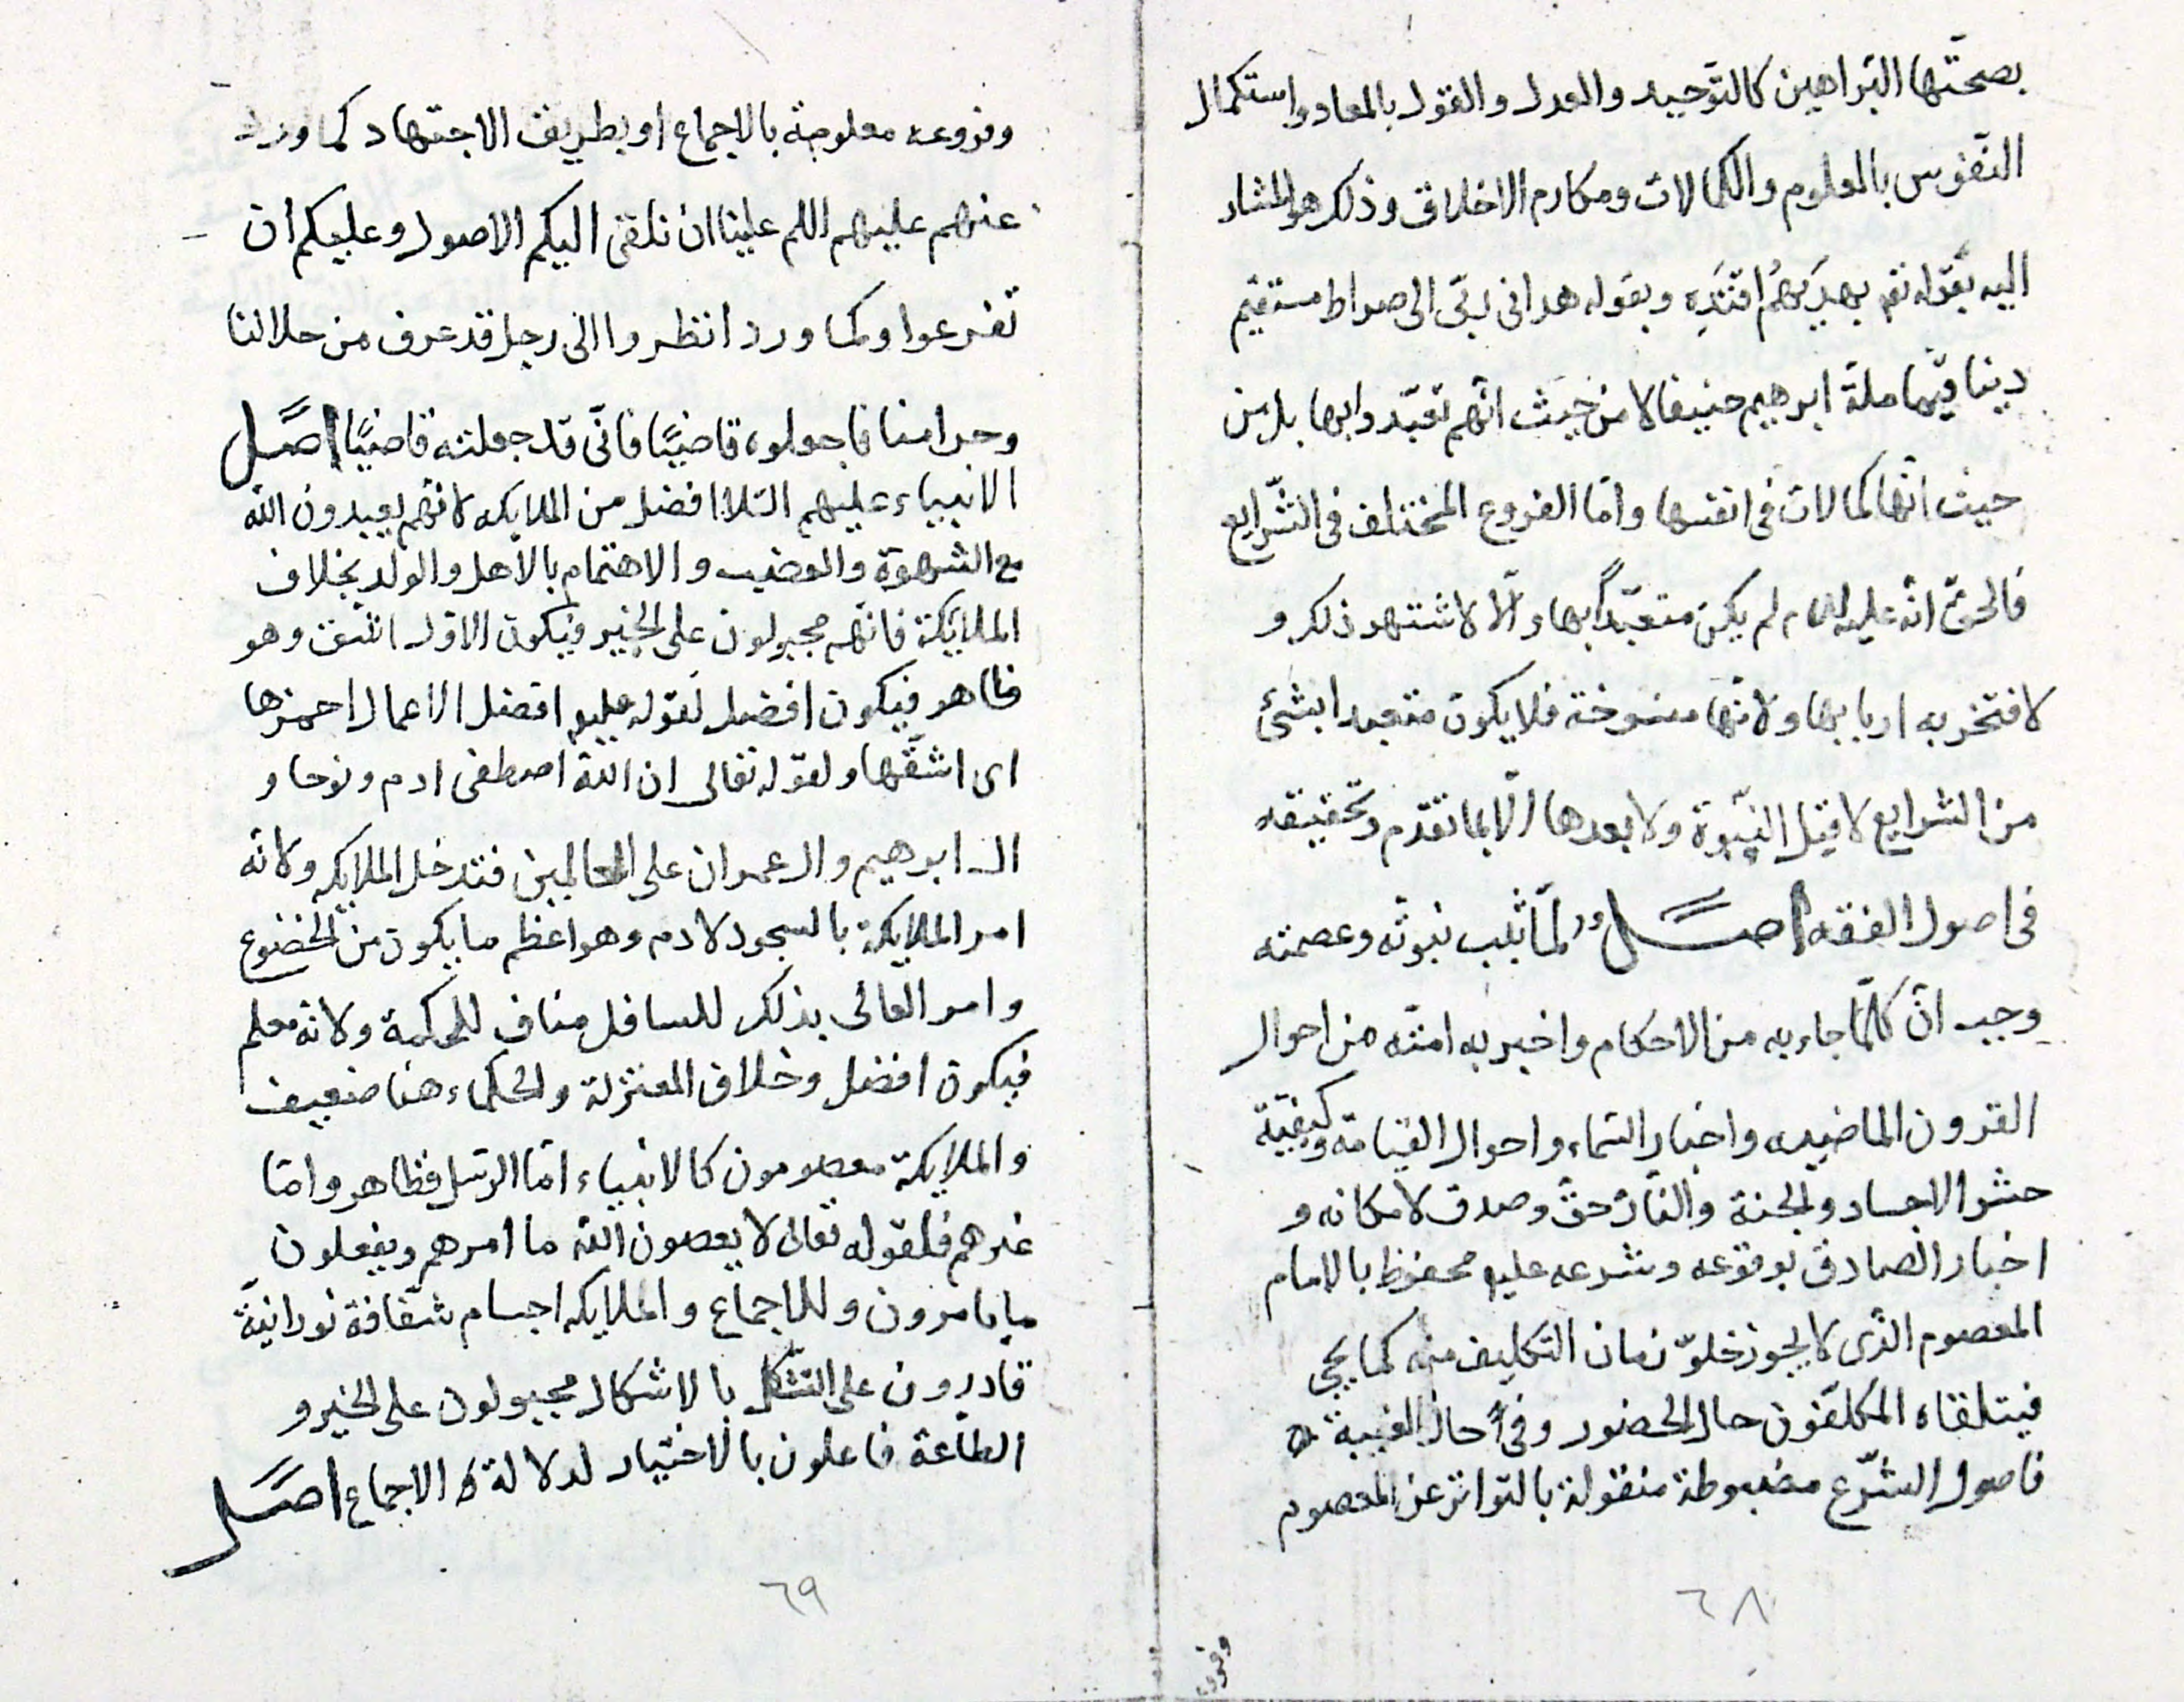 بصحّتها البراهين كالتوحيد والعدل والقول بالمعاد واستكمال
النّفوس بالعلوم والكمالات ومكارم الاخلاق وذلك هو المشار
اليه بقوله تع بهديهم اقتده وبقوله هدانى ربّى الى صراط مستقيم
دينا قيّما ملة ابرهيم حنيفا لا من حيث انّهم تعبّدوا بها بل من
حيث انّها كمالات فى انفسها وامّا الفروع المختلف فى الشّرايع
فالحقّ انّه عليه لم يكن متعبّداً بها والّا لاشتهر ذلك و
لافتخر به اربابها ولانّها منسوخة فلا يكون متعبدا بشئ
من الشرايع لا قبل النّبوة ولا بعدها الّا بما تقدّم وتحقيقه
فى اصول الفقه اصل ولمّا ثبت نبوتّه وعصمته
وجب انّ كلّما جاء به من الاحكام واخبر به امتّه من احوال
القرون الماضيه واخبار السّماء واحوال القيامة وكيفيّة
حشر الاجساد والجنة والنّار حقّ وصدق لامكانه و
اخبار الصادق بوقوعه وشرعه عليه محفوظ بالامام
المعصوم الذّى لا يجوز خلوّ زمان التكليف منه كما يجئ
فيتلقاه المكلّفون حال الحضور وفى حال الغيبة
فاصول الشّرع مضبوطة منقولة بالتّواتر عن المعصوم
٦٨
وفروع
وفروعه معلومة بالاجماع او بطريق الاجتهاد كما ورد
عنهم عليهم اللم علينا ان نلقى اليكم الاصول وعليكم ان
تفرعوا وكما ورد انظروا الى رجل قد عرف من حلالنا
وحرامنا فاجعلوه قاضيًا فانّى قد جعلته قاضيًا اصل
الانبياء عليهم السّلا افضل من الملايكه لانّهم يعبدون اللّه
مع الشهوة والغضب والاهتمام بالاهل والولد بخلاف
الملايكة فانّهم مجبولون على الخير فيكون الاوّل اشّق وهو
ظاهر فيكون افضل لقوله عليه افضل الاعمال احمزها
اى اشقّها ولقوله تعالى ان اللّه اصطفى ادم ونوحا و
ال ابرهيم وال عمران على العالمين فتدخل الملايكه ولانّه
امر الملايكة بالسجود لادم وهو اعظم ما يكون من الخضوع
وامر العالى بذلك للسافل مناف للحكمة ولانه معلم
فيكون افضل وخلاف المعتزلة والحكماء هنا ضعيف
والملايكة معصومون كالانبياء امّا الرسّل فظاهر وامّا
غيرهم فلقوله تعالى لا يعصون اللّه ما امرهم ويفعلون
ما يامرون وللاجماع والملايكه اجسام شفّافة نورانيّة
قادرون على التشكل بالاشكال مجبولون على الخير و
الطاعة فاعلون بالاختيار لدلالة الاجماع اصل
٦٩